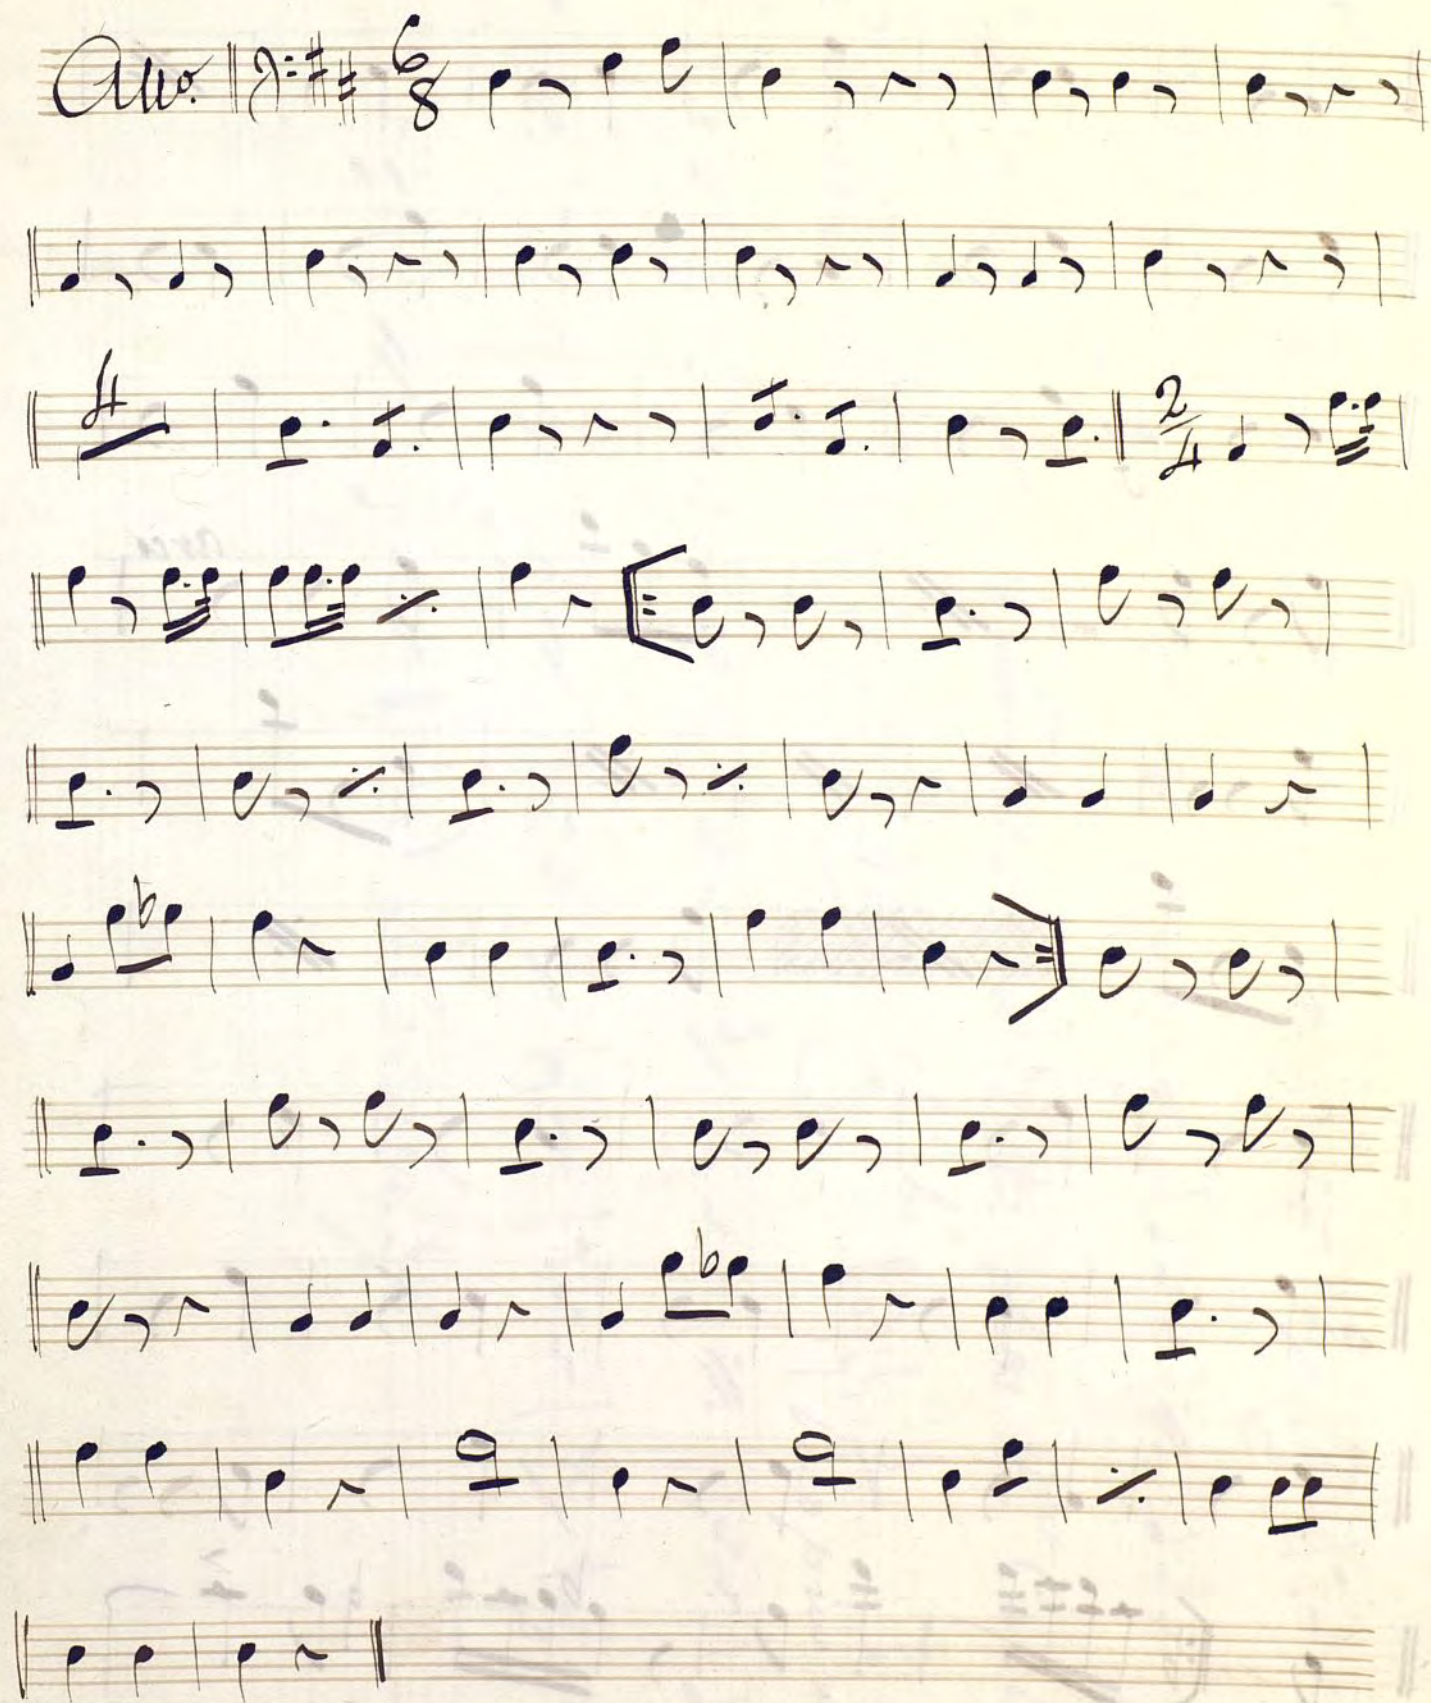 Allo. 6/8
4 2/4